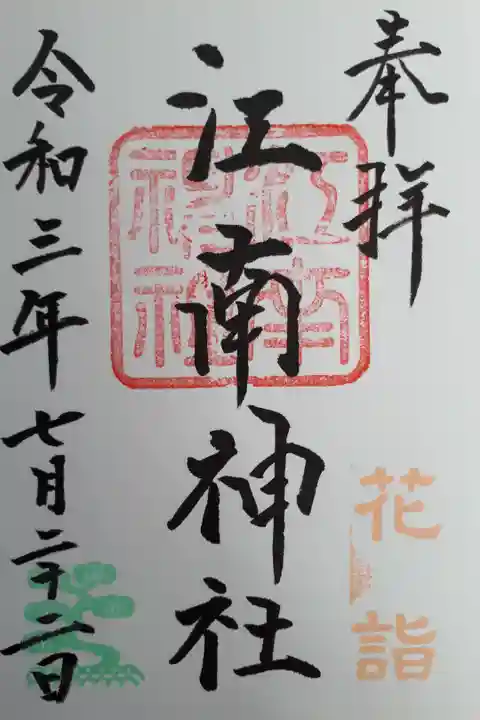 奉拝
花詣
江南神社
江南神社
令和三年七月二十二日